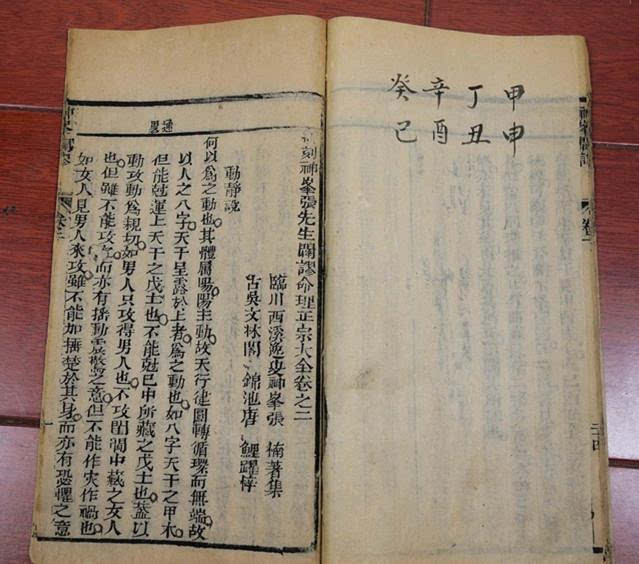 甲申
丁丑
辛酉
癸巳
刻神峯張先生闢謬命理正宗大全卷之二
臨川西溪逸叟神峯張 楠著集
古吳文林閣 錦池唐 鯉躍梓
動靜說
何以爲之動也其體屬陽陽主動故天行徤圓轉循環而無端故
以人之八字天干呈露於上者爲之動也如八字天干之甲木
但能尅運上天干之戊土也不能尅巳中所藏之戊土也葢以
動攻動爲親切如男人只攻得男人也不攻閨閫中藏之女人
也但雖不能攻之而亦有搖動震驚之意但不能作灾作禍也
如女人見男人來攻雖不能加捶楚於其身而亦有恐懼之意